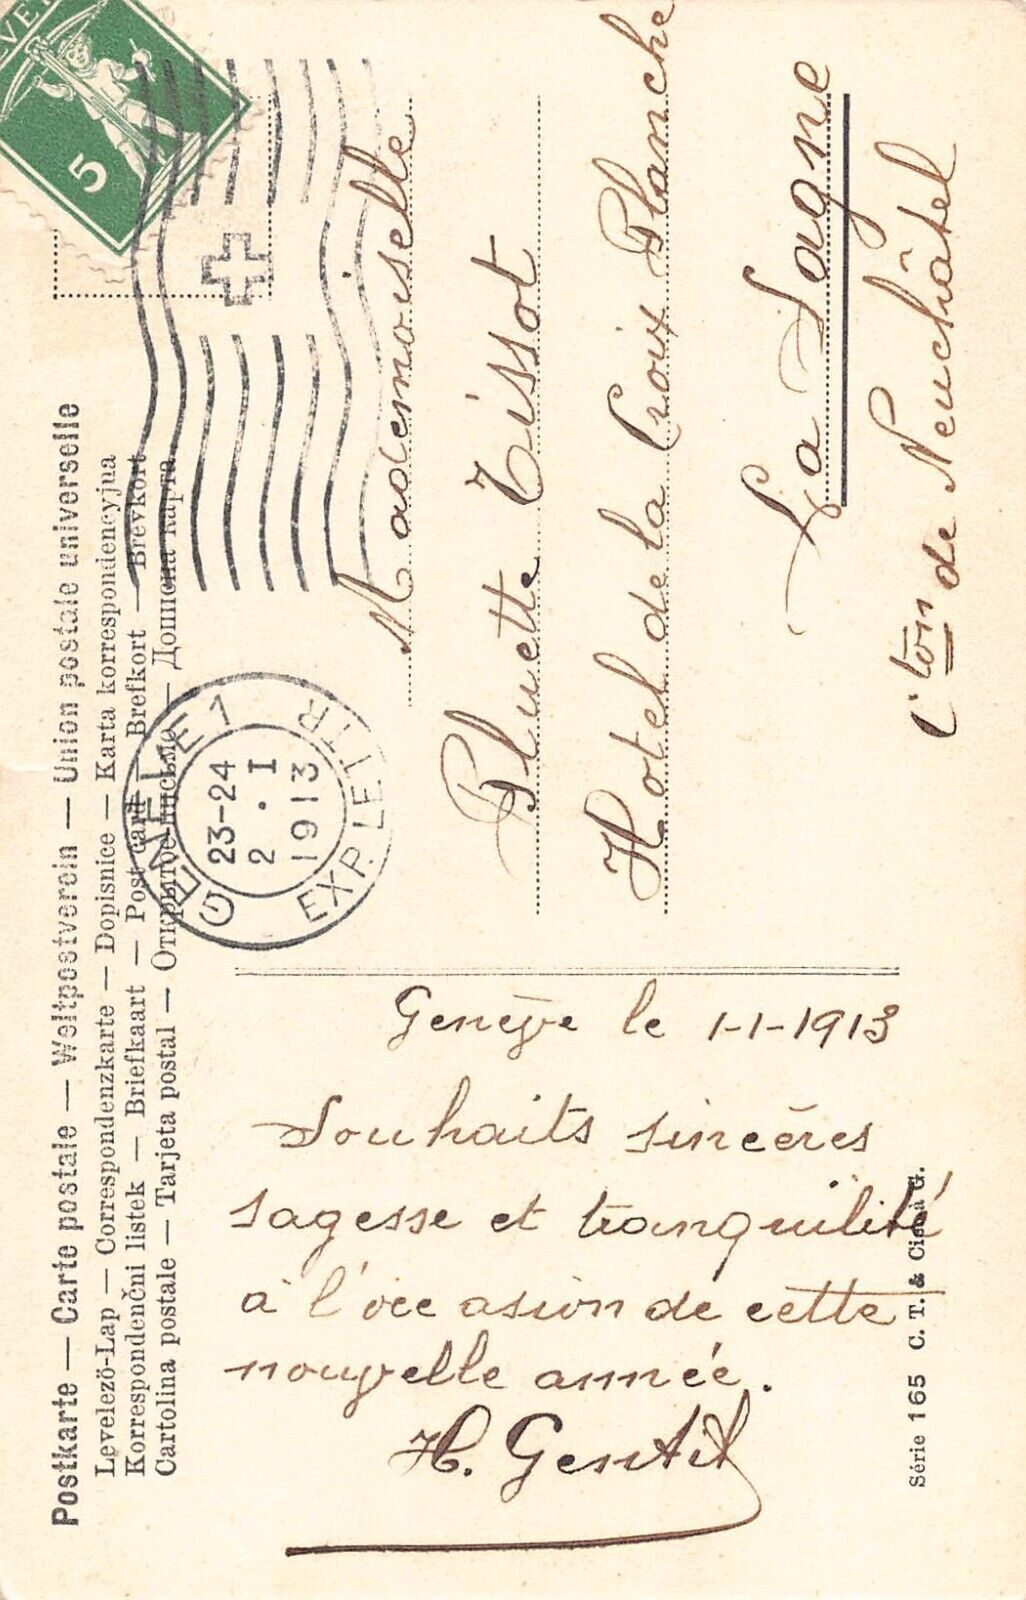 Postkarte — Carte postale — Weltpostverein — Union postale universelle
Levelező-Lap — Correspondenzkarte — Dopisnice — Karta korrespondencyjna
Korrespondenční listek — Briefkaart — Post card — Brefkort — Brevkort
Cartolina postale — Tarjeta postal — Открытое письмо — Дописна карта
HELVE
5
GENÈVE 1
23-24
2 . I
1913
EXP. LETTR
Mademoiselle
Bluette Tissot
Hotel de la Croix Blanche
La Sagne
Cton de Neuchâtel
Genève le 1-1-1913
Souhaits sincères
sagesse et tranquilité
à l'occasion de cette
nouvelle année.
H. Gentil
Série 165 C. T. & Cie à G.